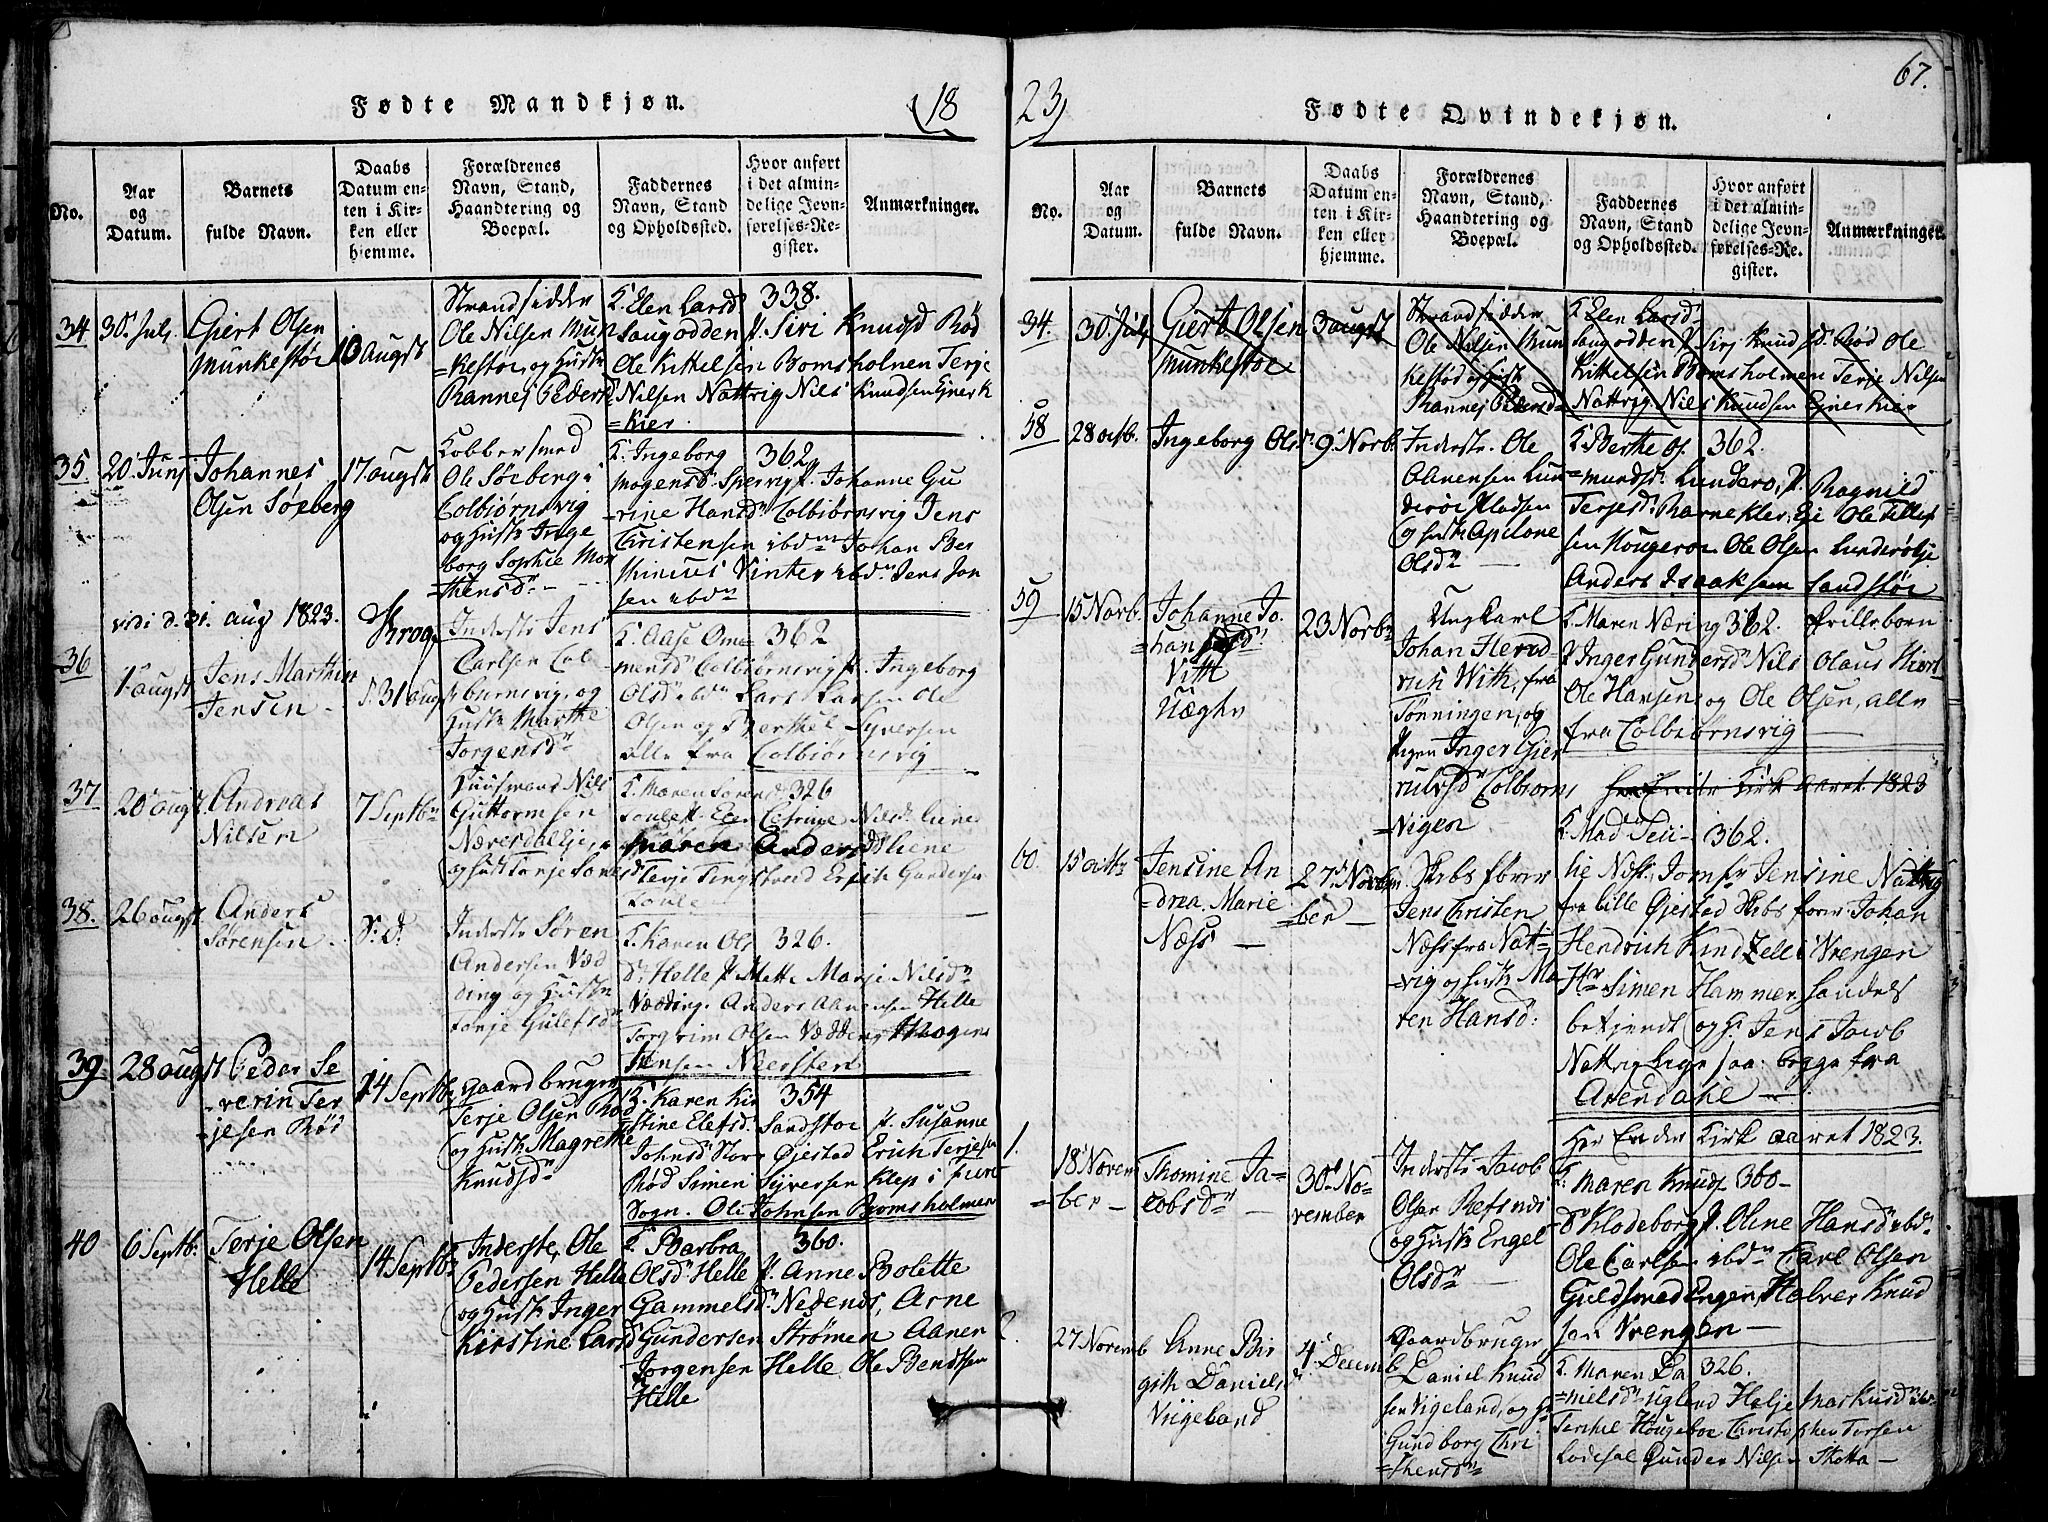 Fødte Mandkjøn.
18
No.
Aar og Datum.
Barnets fulde Navn.
Daabs Datum enten i Kirken eller hjemme.
Forældrenes Navn, Stand, Haandtering og Boepæl.
Faddernes Navn, Stand og Opholdssted.
Hvor anført i det almindelige Jevnførelses-Register.
Anmærkninger.
34
30 Juli
Giert Olsen
Munkestøe
Augst
Strandsidder
Ole Nilsen Mun
=kestoe og Hustr
Rannej Peders
K. Elen Larsd 338.
Saugodden P. Siri Knudsd Rød
Ole Kittelsen Bomsholmen Terje
Nilsen Nattvig Nils Knudsen Gjers K
=kier
35
20 Junj
Johannes
Olsen Sørberg
17 augst
Kobbersmed
Ole Sørberg i
Colbiørnsvig
og Hustr Inge
borg Sophie Mor
=thensdr
K. Ingeborg 362
Mogensd. Spervig P. Johanne Gu
=rine Hansdr Colbiørnsvig Jens
Christensen ibdm Johan Ber
Vinter ibdm Jens Jon
sen ibdm
vidi d. 31 aug 1823.
Krog
36
1 augst
Jens Marthin
Jensen
d. 31 augst
Inderste Jens
Carlsen Col
=biørnsvig og
Hustr Marthe
Jorgensdr
K. Aase Ome 362
mensdr Colbiørnsvig P. Ingeborg
Olsdr ibm Lars Larsen Ole
Olsen og Berthel Syversen
alle fra Colbiørnsvig
37
20 augst
Andreas
Nilsen
7 Septbr
Huusmand Nils
Guttormsen
Næverdal Eje,
og Hust Torje
K. Maren Sorend 326
Nilsd. Liene
Maren Andersd Liene
Terje Tingstveid Erich Gundersen
38.
26 augst
Anders
Sørensen
S. D.
Inderste Søren
Andersen Væd
ding og Hustr
Torje Gulefsdr
K. Karen Ols 326.
dr Helle P. Mette Marje Nilsdr
Vædding. Anders Aanensen Helle
Torgrim Olsen Vædding Mogens
Jensen Neersten
39
28 augst
Peder Se
=verin Ter
=jesen Rød
14 Septb.
Gaardbruger
Terje Olsen Rød
og Hustr Magrethe
Knudsdr
K. Karen Kir 354
stine Elefsd. Sandstoe P. Susanne
Johnsd Store Øjestad Erich Terjesen
Rød Simen Syversen Klep i
Sogn. Ole Johnsen Bomsholmen
40
6 Septb.
Terje Olsen
Helle
14 Septb.
Inderste, Ole
Pedersen Helle
og Hustr Inger
Kirstine Larsd
K. Barbra 360.
Olsd Helle P. Anne Bolette
Gammelsd. Nedenes, Arne
Gundersen Strømen Aanen
Jorgensen Helle Ole Bendtsen
Helle
23
67.
Fødte Qvindekjøn.
No.
Aar og Datum.
Barnets fulde Navn.
Daabs Datum enten i Kirken eller hjemme.
Forældrenes Navn, Stand, Haandtering og Boepæl.
Faddernes Navn, Stand og Opholdssted.
Hvor anført i det almindelige Jevnførelses-Register.
Anmærkninger.
34.
30 July
Giert Olsen
Munkestoe
3 augst
Strandsidder
Ole Nilsen Mun
kestød og Hustr
Rannej Pedersd
K Elen Larsd
Saugodden P Sirj Knudsd. Rød Ole
Kittelsen Bomsholmen Terje Nilsen
Nattvig Nils Knudsen Gjers Kier
58
28 octb.
Ingeborg Olsdr
9 Novb.
Inderste. Ole
Aanensen Lun
derøe Pladsen
og Hustr Apelone
Olsdr
K Berthe Os 362.
=mundsd. Lunderø, P. Ragnild
Terjesd. Barnekler Eje Ole Tellef
sen Hougerøe Ole Olsen Lunderø Eje
Anders Isaaksen Sandstøe
59
15 Novb.
Johanne Jo
=hansd.
Vith
Uægte
23 Novbr
Ungkarl
Johan Hend
rich With, fra
Tønningen, og
Pigen Inger Gjer
rulsd Colbiørns
=Vigen
K. Maren Næring 362. Frilleborn
P Inger Gundersdr Nils Olaus
Ole Hansen og Ole Olsen, alle
fra Colbiørnsvig
Her Ender Kirk aaret 1823
60.
15 octbr
Jensine An
=drea Marie
Næss
27 Novbm
=ber
Skibsfører
Jens Christen
Næss fra Nat=
=vig og Hustr Ma
ren Hansd:
K. Mad Ceci 362.
lie Næss, Jomfr Jensine Nattvig
fra Lille Øjestad Skibsfører Johan
Hendrich Kindzelle Vrengen
Hr Simen Hammer Handels
betjendt og Hr Jens Jacob
Nattvig lige saa begge fra
Arendahl
Her Ender Kirk aaret 1823.
1.
18 Novem
=ber
Thomine Ja=
cobsdr
30 No
vember
Inderste Jacob
Olsen Refsnes
og Hustr Engel
Olsdr
K: Maren Knuds 360
dr Klodeborg P. Oline Hansdr ibd
Ole Carlsen ibdm Carl Olsen
Guldsmed Engen, Halvor Knud
sen Vrengen
2
27 Novemb
Anne Bir
gith Daniels
Viigeland
4 Decemb
Gaardbruger
Daniel Knud
sen Vigeland, og Hu
Gundborg Chri
=stensdr
K. Maren Da 326.
=nielsdr Ugland Helje Markusdr ibd
Terkel Hougeboe Christopher Torsen
Lodesøl Gunder Nilsen Skotta